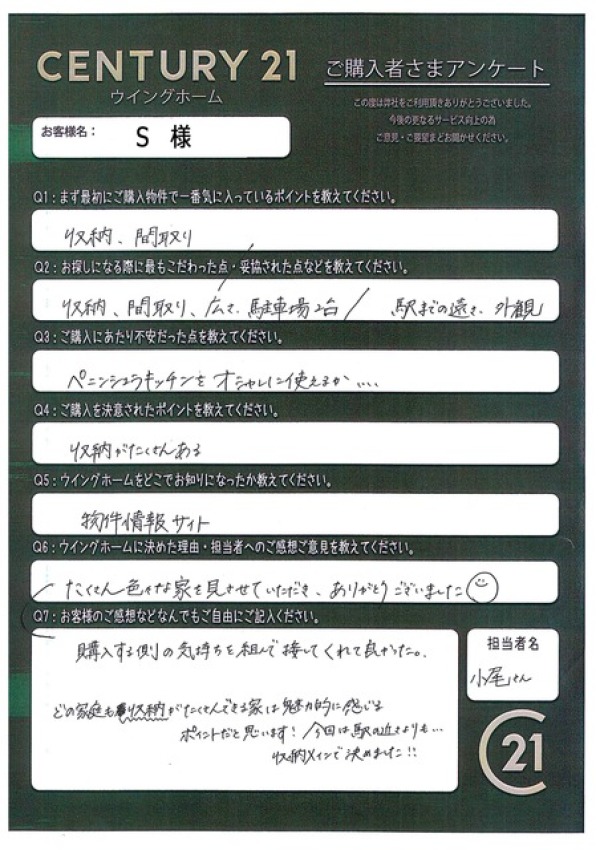 CENTURY 21
ウイングホーム
ご購入者さまアンケート
この度は弊社をご利用頂きありがとうございました。
今後の更なるサービス向上の為
ご意見・ご要望までお聞かせください。
お客様名: S 様
Q1:まず最初にご購入物件で一番気に入っているポイントを教えてください。
収納、間取り
Q2:お探しになる際に最もこだわった点・妥協された点などを教えてください。
収納、間取り、広さ、駐車場2台 / 駅までの遠さ、外観
Q3:ご購入にあたり不安だった点を教えてください。
ペニンシュラキッチンをオシャレに使えるか....
Q4:ご購入を決意されたポイントを教えてください。
収納がたくさんある
Q5:ウイングホームをどこでお知りになったか教えてください。
物件情報サイト
Q6:ウイングホームに決めた理由・担当者へのご感想ご意見を教えてください。
たくさん色々な家を見させていただき、ありがとうございました
Q7:お客様のご感想などなんでもご自由にご記入ください。
購入する側の気持ちを組んで接してくれて良かった。
どの家庭も収納がたくさんできる家は魅力的に感じる
ポイントだと思います!今回は駅の近さよりも...
収納メインで決めました!!
担当者名
小尾さん
C21